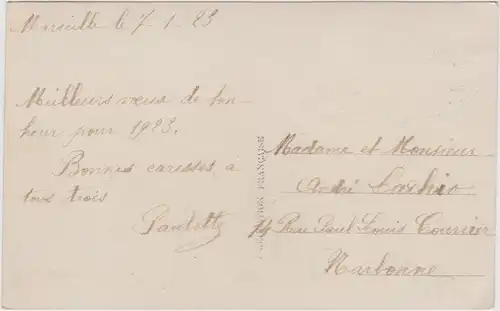 Marseille le 7-1-23
Meilleurs vœux de bon-
heur pour 1923.
Bonnes caresses à
tous trois
Paulette
FABRICATION FRANÇAISE
Madame et Monsieur
André
14 Rue Paul Louis Courrier
Narbonne